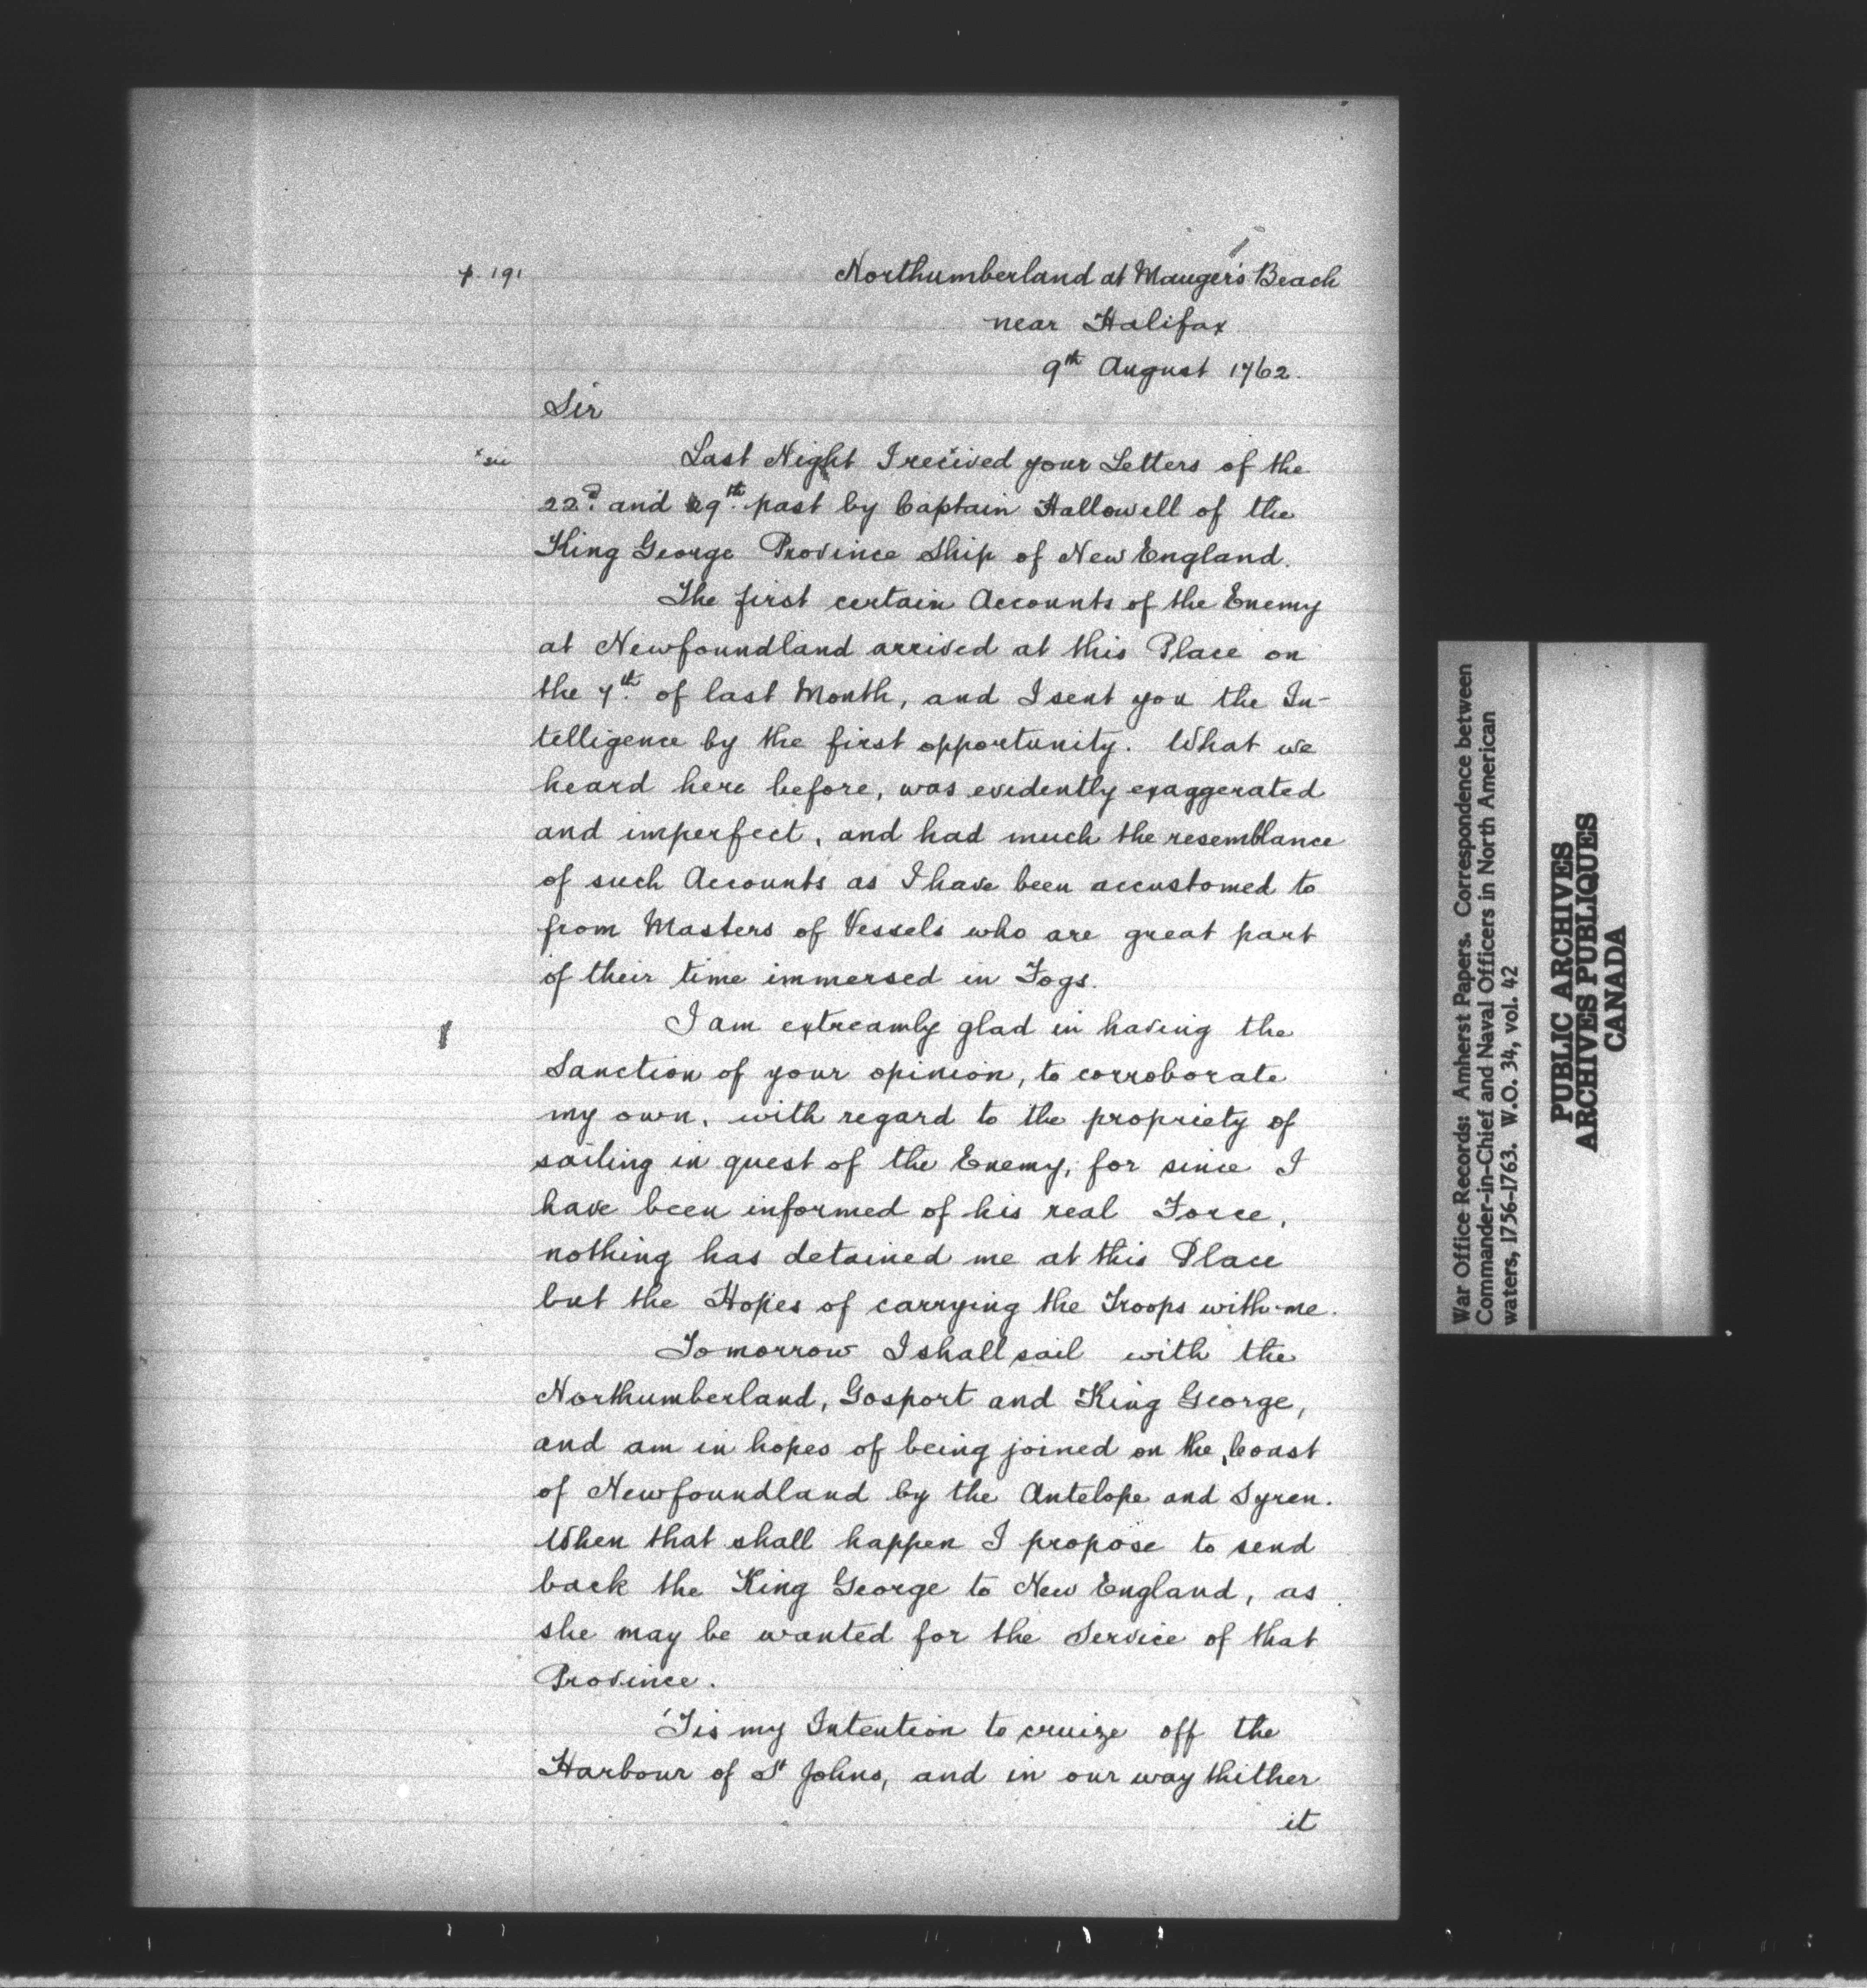 p. 191
Northumberland at Mauger's Beach
near Halifax
9th August 1762.
Sir
x sic
Last Night I recived your Letters of the
22d. and 29th. past by Captain Hallowell of the
King George Province Ship of New England.
The first certain Accounts of the Enemy
at Newfoundland arrived at this Place on
the 7th. of last Month, and I sent you the In-
telligence by the first opportunity. What we
heard here before, was evidently exaggerated
and imperfect, and had much the resemblance
of such Accounts as I have been accustomed to
from Masters of Vessels who are great part
of their time immersed in Fogs.
I am extreamly glad in having the
Sanction of your opinion, to corroborate
my own, with regard to the propriety of
sailing in quest of the Enemy, for since I
have been informed of his real Force,
nothing has detained me at this Place
but the Hopes of carrying the Troops with me.
Tomorrow I shall sail with the
Northumberland, Gosport and King George,
and am in hopes of being joined on the Coast
of Newfoundland by the Antelope and Syren.
When that shall happen I propose to send
back the King George to New England, as
she may be wanted for the Service of that
Province.
'Tis my Intention to cruize off the
Harbour of St Johns, and in our way thither
it
War Office Records: Amherst Papers. Correspondence between
Commander-in-Chief and Naval Officers in North American
waters, 1756-1763. W.O. 34, vol. 42
PUBLIC ARCHIVES
ARCHIVES PUBLIQUES
CANADA